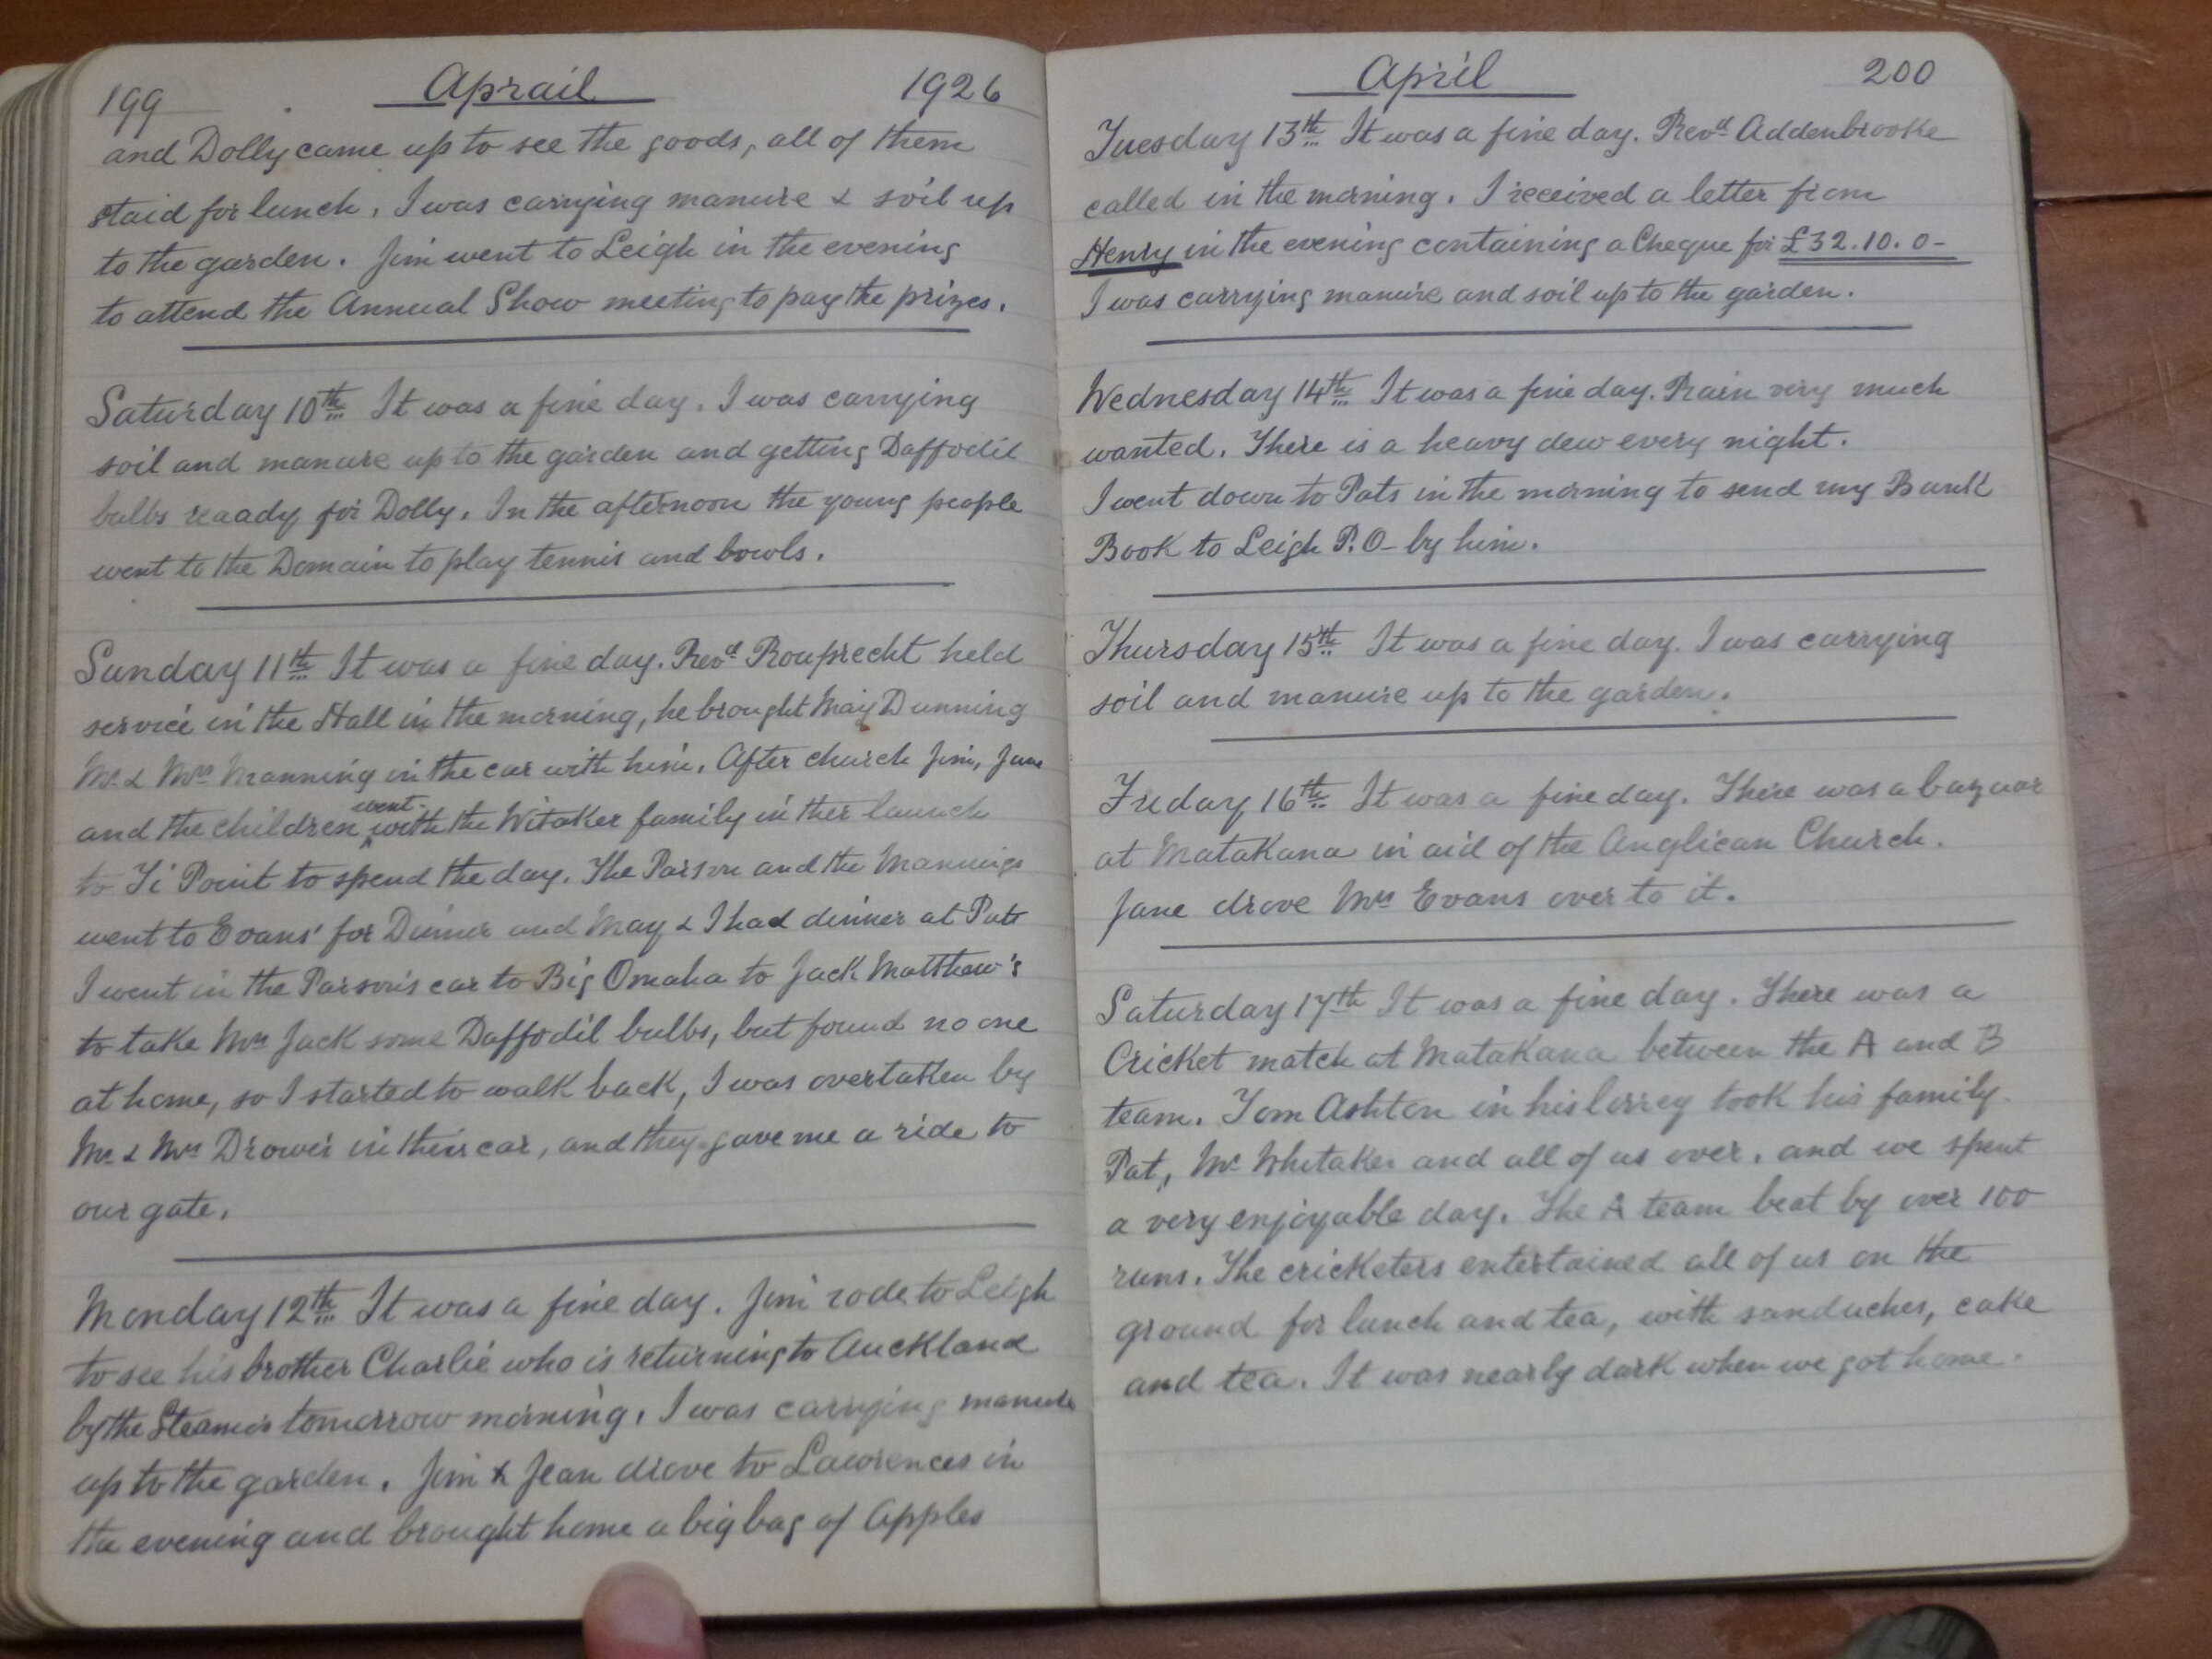 199 Aprail 1926
and Dolly came up to see the goods, all of them
staid for lunch. I was carrying manure & soil up
to the garden. Jim went to Leigh in the evening
to attend the Annual Show meeting to pay the prizes.
Saturday 10th It was a fine day. I was carrying
soil and manure up to the garden and getting Daffodil
bulbs reaady for Dolly. In the afternoon the young people
went to the Domain to play tennis and bowls.
Sunday 11th It was a fine day. Revd Rouprecht held
service in the Hall in the morning, he brought May Dunning
Mr. & Mrs Manning in the car with him. After church Jim, Jane
and the children went with the Witaker family in ther launch
to Ti Point to spend the day. The Parson and the Mannings
went to Evans' for Dinner and May & I had dinner at Pats
I went in the Parson's car to Big Omaha to Jack Matthew's
to take Mrs Jack some Daffodil bulbs, but found no one
at home, so I started to walk back, I was overtaken by
Mr & Mrs Drower in their car, and they gave me a ride to
our gate.
Monday 12th It was a fine day. Jim rode to Leigh
to see his brother Charlie who is returning to Auckland
by the Steamer tomorrow morning. I was carrying manure
up to the garden. Jim & Jean drove to Lawrences in
the evening and brought home a big bag of Apples
April 200
Tuesday 13th It was a fine day. Revd Addenbrooke
called in the morning. I received a letter from
Henry in the evening containing a Cheque for £32.10.0-
I was carrying manure and soil up to the garden.
Wednesday 14th It was a fine day. Rain very much
wanted. There is a heavy dew every night.
I went down to Pats in the morning to send my Bank
Book to Leigh P.O- by him.
Thursday 15th It was a fine day. I was carrying
soil and manure up to the garden.
Friday 16th It was a fine day. There was a bazaar
at Matakana in aid of the Anglican Church.
Jane drove Mrs Evans over to it.
Saturday 17th It was a fine day. There was a
Cricket match at Matakana between the A and B
team. Tom Ashton in his lorrey took his family.
Pat, Mr Whitaker and all of us over, and we spent
a very enjoyable day. The A team beat by over 100
runs. The cricketers entertained all of us on the
ground for lunch and tea, with sanduches, cake
and tea. It was nearly dark when we got home.